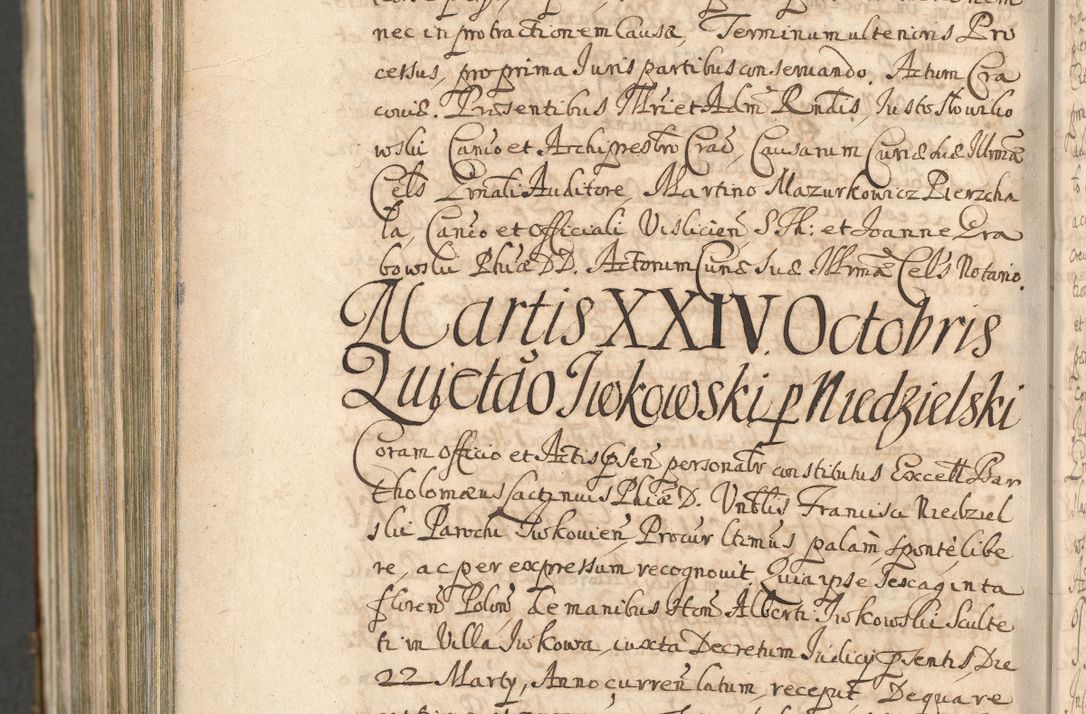 nec in protractionem Causæ, Terminum ulterioris Pro
cessus, pro prima Iuris partibus conservando. Actum Cra
coviæ. Præsentibus Illri et Adm̃ Rndis, Iusto Słowiko
wski Canĩo et Archipresbrõ Craĉ, Causarum Curiæ suæ Illrmæ
Cels Prnali Auditore, Martino Mazurkowicz Pierzcha
la, Canĩo et Officiali Vislicieñ S. Th: et Joanne Gra
bowski Phiæ DD. Actorum Curiæ Suæ Illrmæ Cels Notario.
Martis XXIV. Octobris
Quietaõ Iwkowski p Niedzielski
Coram Officio et Actis pseñ personalr constitutus Excell Bar
tholomæus Phiæ D. Vnblis Francisci Niedziel
ski Parochi Iwkovieñ, Procur ltimus palam, sponte, libe
re, ac per expressum recognovit. Quia ipse Sexaginta
floreñ Poloñ de manibus Hoñ Alberti Iwkowski Sculte
ti in Villa Iwkowa, iuxta Decretum Iudicij psentis, Die
22 Martij, Anno curreñ latum, recepit. De quare